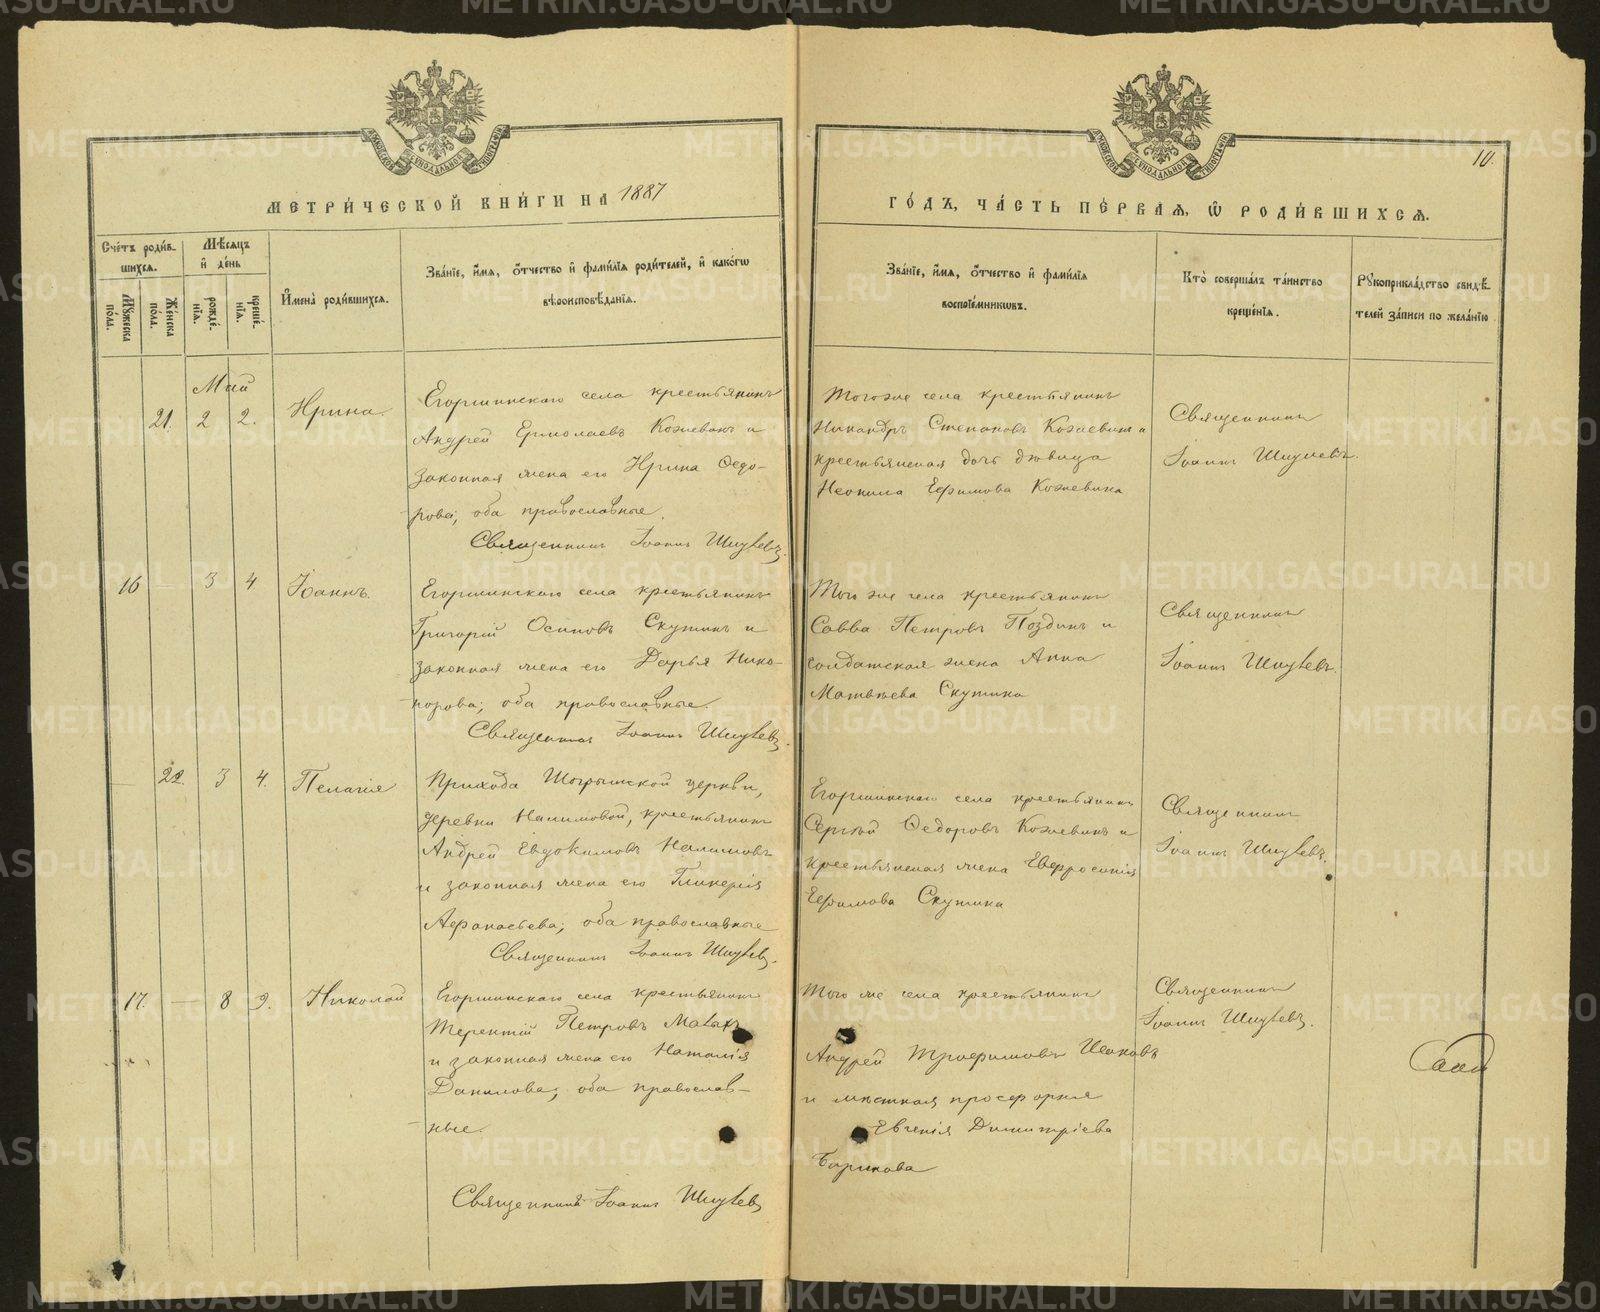 МЕТРИ́ЧЕСКОЙ КНИ́ГИ НА 1887
ГО́ДЪ, ЧА́СТЬ ПЕ́РВАЯ, Ѿ РОДИ́ВШИХСЯ.
10.
Сче́тъ роди́в-
шихся.
Мѣ́сяцъ
и́ де́нь
Му́жеска по́ла.
Же́нска по́ла.
рожде́-
нїя.
креще́-
нїя.
И҆мена̀ роди́вшихся.
Зва́нїе, и҆́мя, о҆́тчество и҆ фами́лїя роди́телей, и҆ како́гѡ
вѣроисповѣ́данїя.
Зва́нїе, и҆́мя, о҆́тчество и҆ фами́лїя
воспрїе́мниковъ.
Кто̀ соверша́лъ та́инство
креще́нїя.
Рꙋкоприкла́дство свидѣ́-
телей за́писи по жела́нїю
Май
21. 2 2.
Ирина.
Егоршинскаго села крестьянинъ
Андрей Ермолаевъ Кожевинъ и
законная жена его Ирина Ѳедо-
рова; оба православные.
Священникъ Іоаннъ
Тогоже села крестьянинъ
Никандръ Степановъ Кожевинъ и
крестьянская дочь дѣвица
Неонила Ефимова Кожевина
Священникъ
Іоаннъ
16 — 3 4
Іоаннъ.
Егоршинскаго села крестьянинъ
Григорій Осиповъ Скутинъ и
законная жена его Дарья Нико-
норова; оба православные.
Священникъ Іоаннъ
Того же села крестьянинъ
Савва Петровъ Поздинъ и
солдатская жена Анна
Матвѣева Скутина
Священникъ
Іоаннъ
— 22. 3 4.
Пелагія
Прихода Шогрышской церкви,
деревни Налимовой, крестьянинъ
Андрей Евдокимовъ Налимовъ
и законная жена его Гликерія
Афанасьева; оба православные
Священникъ Іоаннъ
Егоршинскаго села крестьянинъ
Сергѣй Ѳедоровъ Кожевинъ и
крестьянская жена Евфросинія
Ефимова Скутина
Священникъ
Іоаннъ
17. — 8 9.
Николай
Егоршинскаго села крестьянинъ
Терентій Петровъ Малыхъ
и законная жена его Наталія
Данилова; оба православ-
ные.
Священникъ Іоаннъ
Того же села крестьянинъ
Андрей Трофимовъ Исаковъ
и мѣстная просфорня
Евгенія Димитріева
Священникъ
Іоаннъ
METRIKI.GASO-URAL.RU